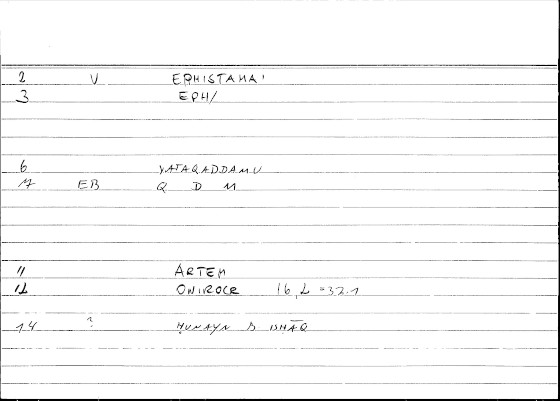 2 V EPHISTAMAI
3 EPH/
6 YATAQADDAMU
7 EB Q D M
11 ARTEM
12 ONIROCR 16,2 = 32.1
14 ? ḤUNAYN B ISḤĀQ